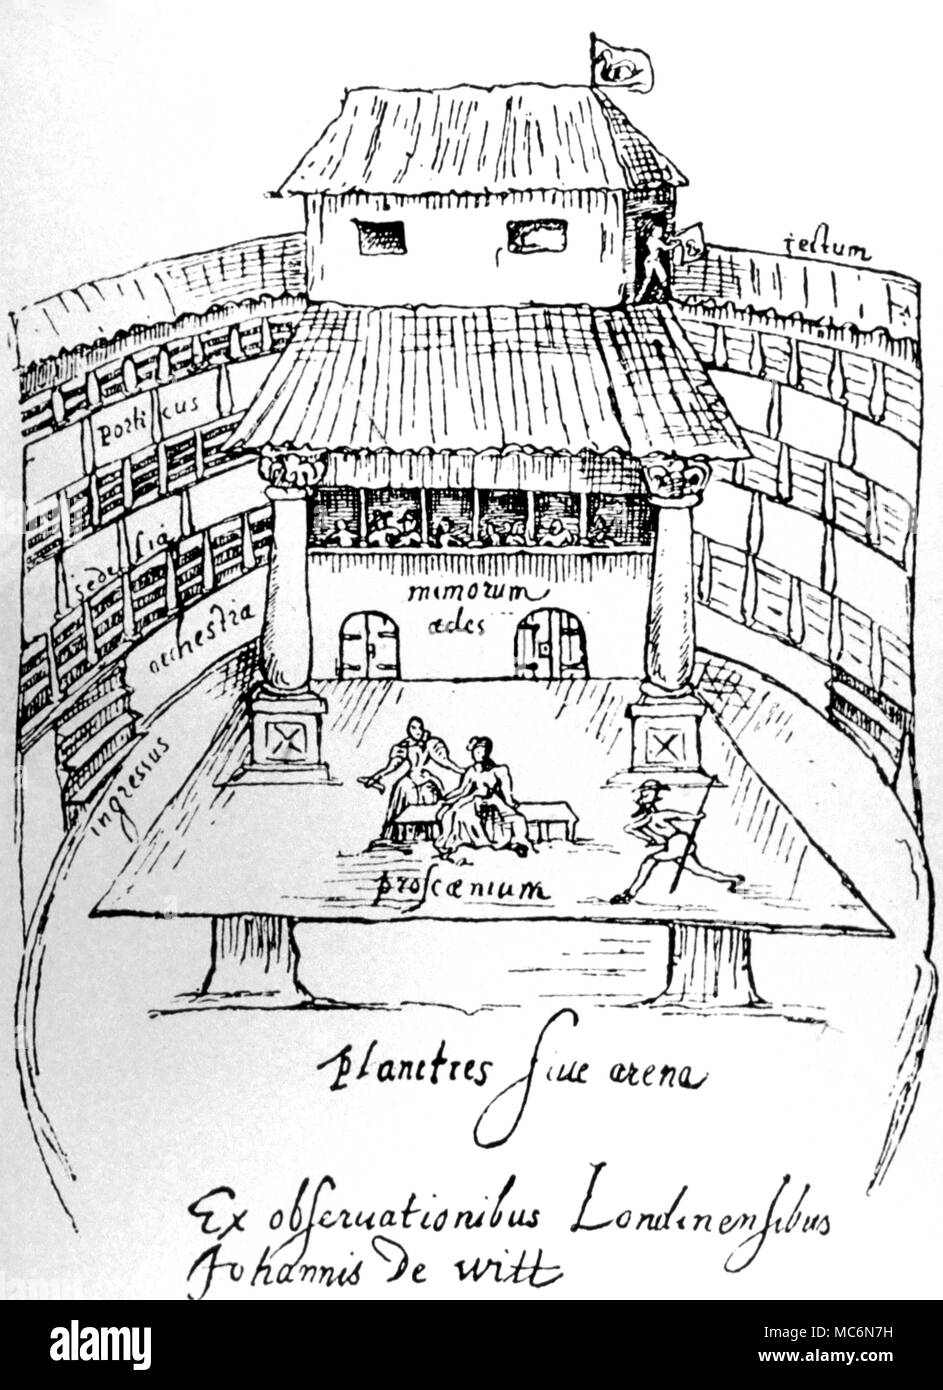 tectum
porticus
sedilia
orchestra
mimorum
ædes
ingressus
proscænium
planities siue arena
Ex obseruationibus Londinensibus
Johannis De Witt
a
alamy
Image ID: MC6N7H
www.alamy.com